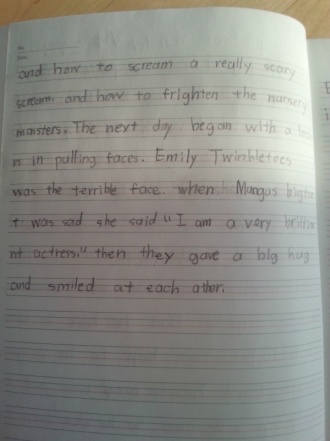 and how to scream a really scary
scream, and how to frighten the nursery
monsters. The next day began with a
n in pulling faces. Emily Twinkletoes
was the terrible face. when Mungus
t was sad she said "I am a very brillia
nt actress." then they gave a big hug
and smiled at each other.